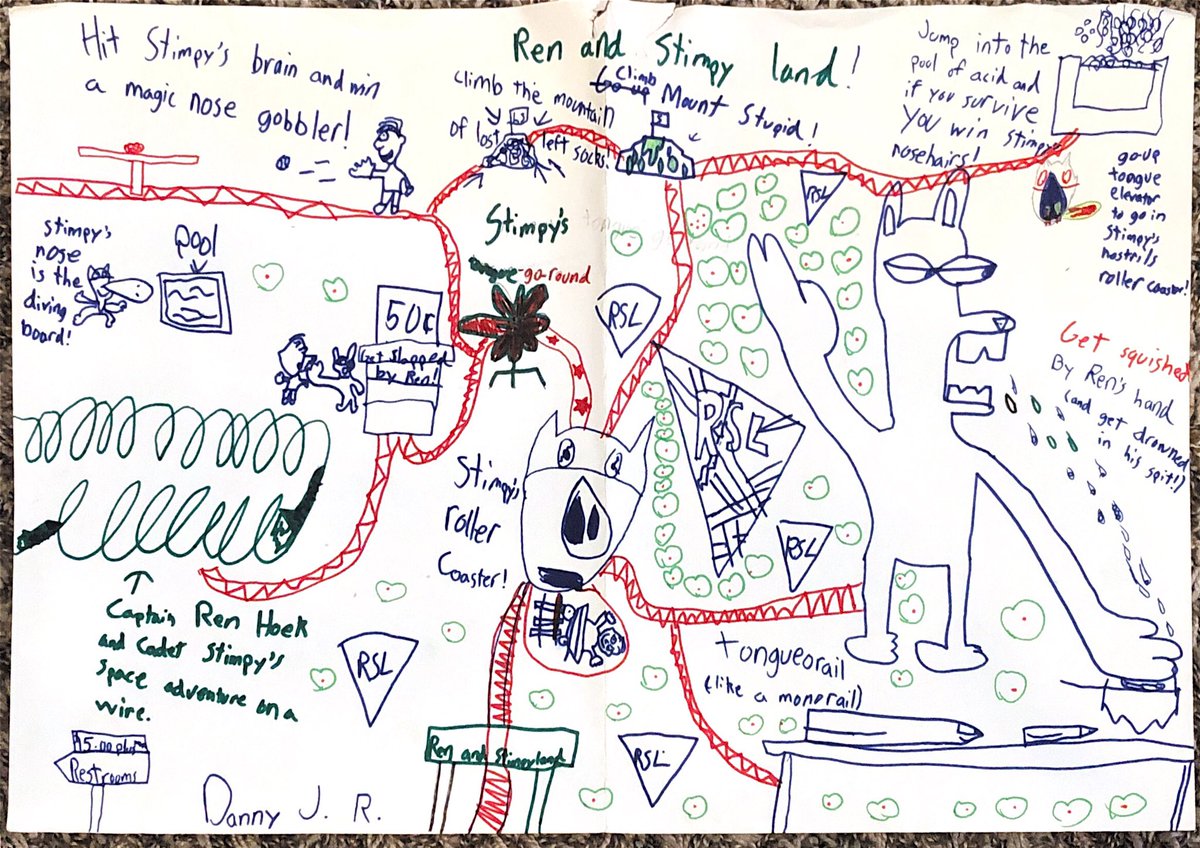 Ren and Stimpy land!
Hit Stimpy's brain and win
a magic nose gobbler!
climb the mountain
of lost
left socks!
Climb
Mount Stupid!
Jump into the
pool of acid and
if you survive
you win stimpy's
nosehairs!
go up
tongue
elevator
to go in
Stimpy's
nostrils
roller coaster!
RSL
stimpy's
nose
is the
diving
board!
Pool
Stimpy's
-go-round
50¢
Get slapped
by Ren!
RSL
Get squished
By Ren's hand
(and get drowned
in his spit!)
RSL
RSL
Stimpy's
roller
Coaster!
Captain Ren Hoek
and Cadet Stimpy's
space adventure on a
wire.
RSL
tongueorail
(like a monorail)
Ren and Stimpyland
RSL
Restrooms
Danny J. R.